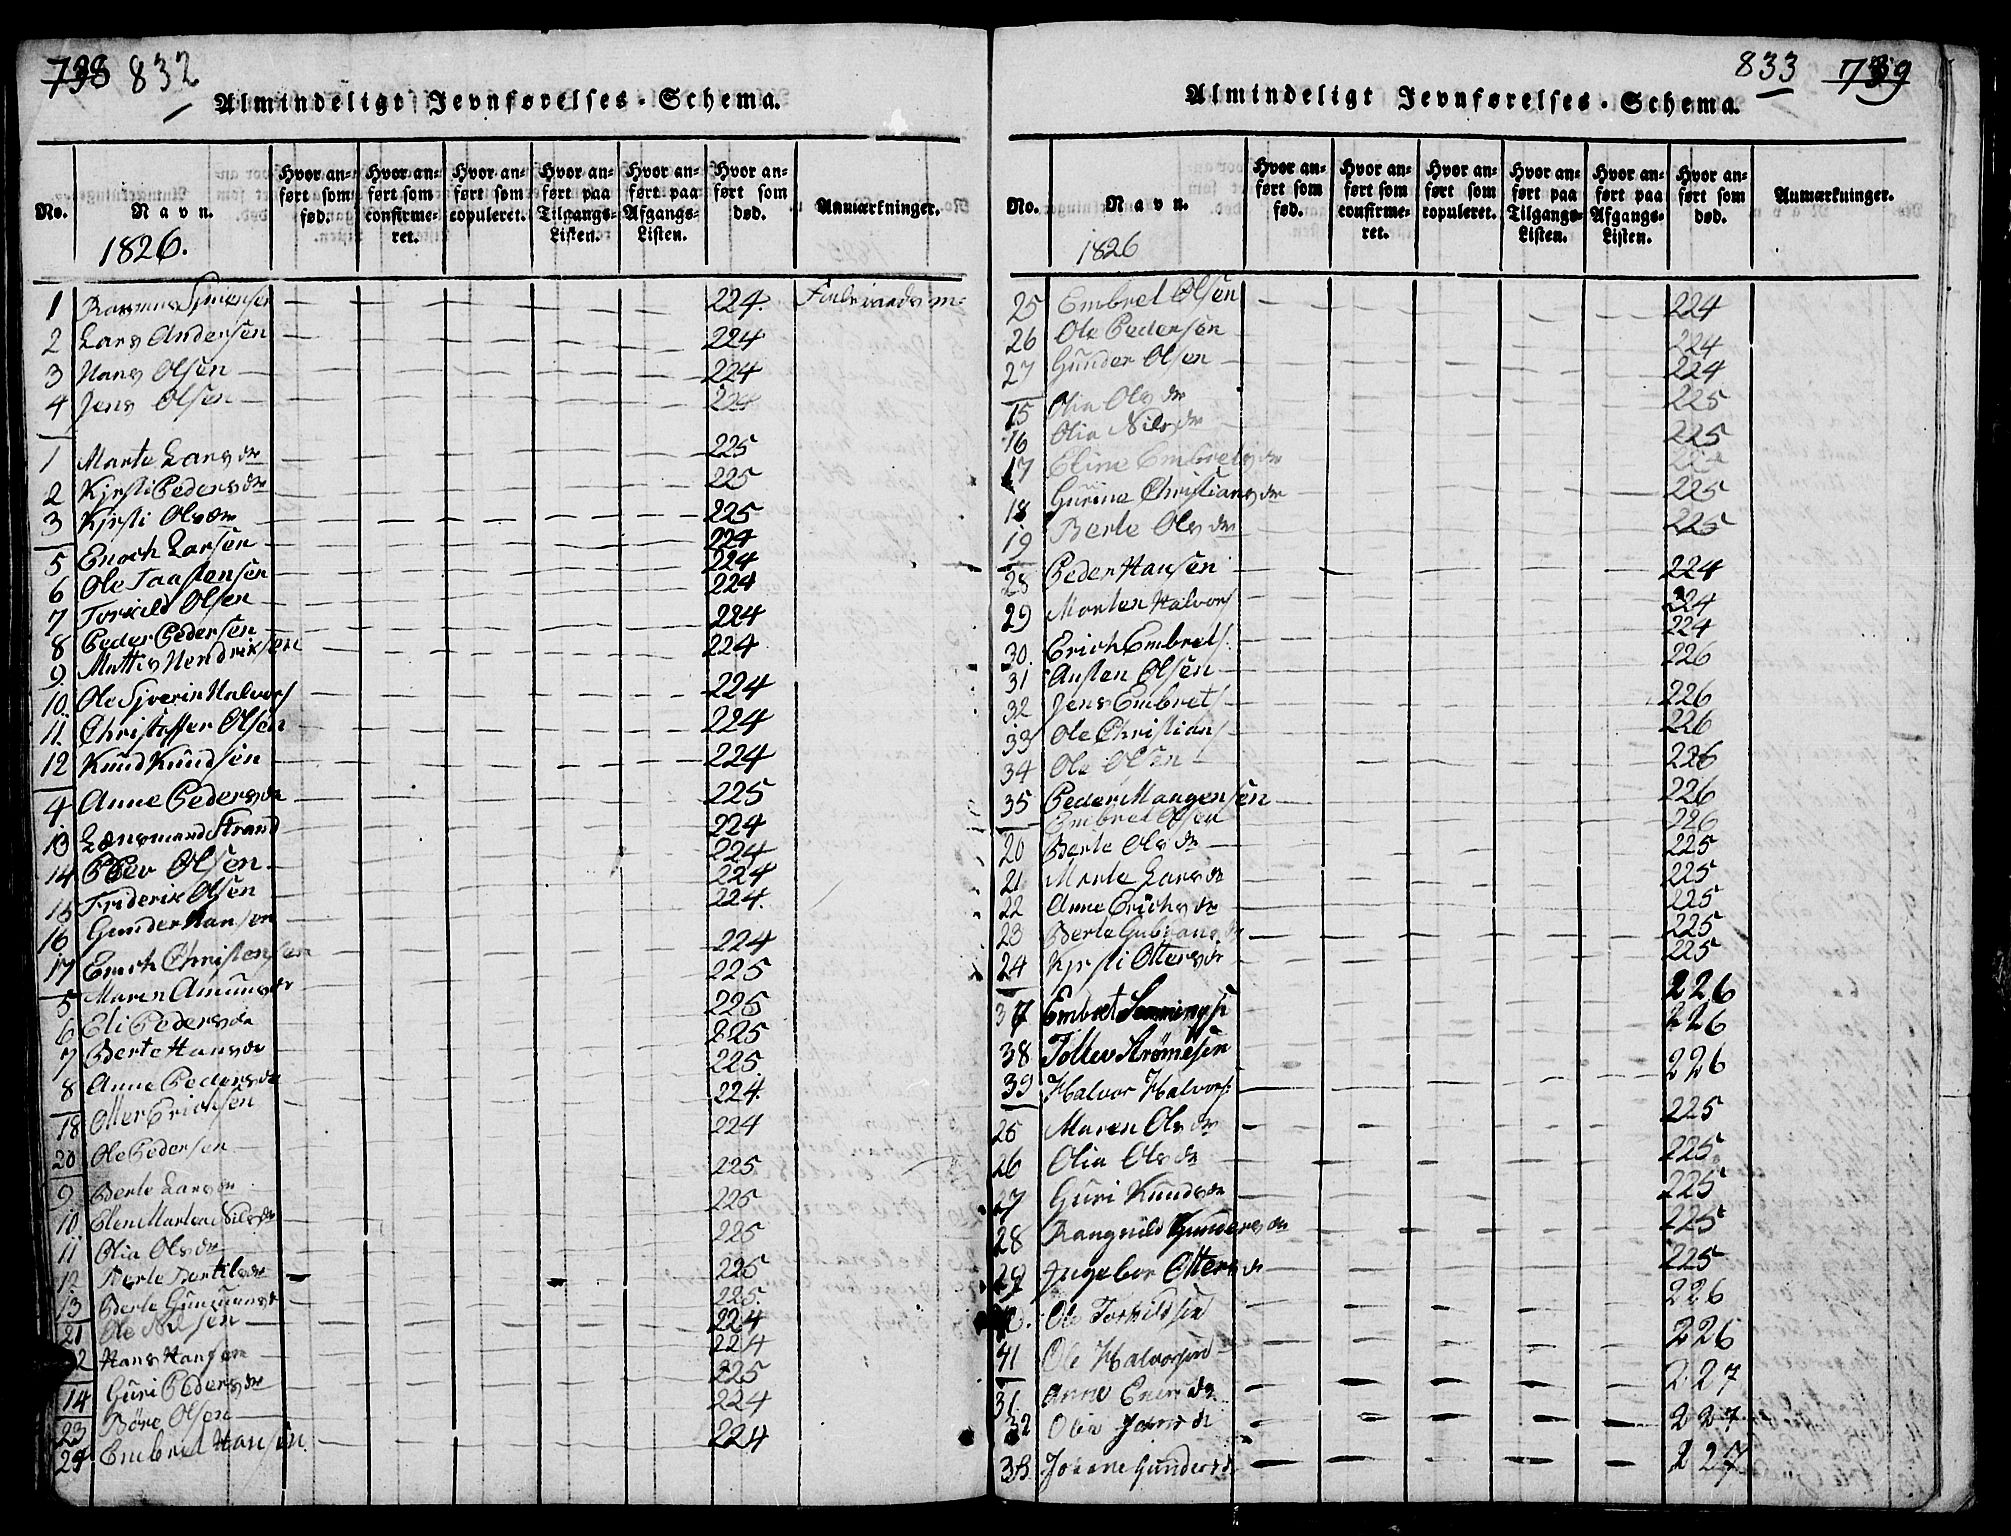 738 832
Almindeligt Jevnførelses-Schema.
No. Navn. Hvor anført som fød. Hvor anført som confirmeret. Hvor anført som copuleret. Hvor anført paa Tilgangs-Listen. Hvor anført paa Afgangs-Listen. Hvor anført som død. Anmærkninger.
1826.
1 Rasmus 224.
2 Lars Andersen 224
3 Hans Olsen 224
4 Jens Olsen 224
1 Marte Larsdr 225
2 Kjrsti Pedersdr 225
3 Kjrsti Olsdr 225
5 Enoch Larsen 224
6 Ole Taastensen 224
7 Torkild Olsen 224
8 Peder Pedersen 224
9. Mattis Hendriksen 224
10. Ole Sjverin Halvors 224
11. Christoffer Olsen 224
12 Knud Knudsen 224
4. Anne Pedersdr 225
13 Lænsmand Strand 224
14 Olsen 224
15 Friderik Olsen 224
16 Gunder Hansen 224.
17 Erich Christensen 224
5 Maren Amunsdr 225
6 Eli Pedersdr 225
7 Berte Hansdr 225
8 Anne Pedersdr 225.
18 Otter Erichsen 224.
20 Ole Pedersen 224
9 Berte Larsdr 225
10 Elen Marten Nilsdr 225
11 Olia Olsdr 225
12 Berte Bertilsdr 225
13 Berte Gunsdr 225.
21 Ole Nilsen 224
22 Hans Hansen 224
14 Guri Pedersdr 225
23 Børe Olsen 224
24 Embret Hansen 224
833 739
Almindeligt Jevnførelses-Schema.
No. Navn. Hvor anført som fød. Hvor anført som confirmeret. Hvor anført som copuleret. Hvor anført paa Tilgangs-Listen. Hvor anført paa Afgangs-Listen. Hvor anført som død. Anmærkninger.
1826
25 Embret Olsen 224
26 Ole Pedersen 224
27 Gunder Olsen 224
15 Olia Olsdr 225
16 Olia Nilsdr 225
17 Eline Embretsdr 225
18 Gurina Christiansdr 225
19 Berte Olsdr 225
28 Peder Hansen 224
29 Morten Halvors 224
30. Erich Embrets. 224
31 Austen Olsen 226
32 Jens Embrets 226
33 Ole Christians 226
34 Ole Olsen 226
35 Peder Mangensen 226
Embret Olsen 226
20 Berte Olsdr 225
21 Marte Larsdr 225
22 Anne Erichsdr 225
23 Berte Gubransdr 225
24 Kjrsti Ottersdr 225
37 Embret 226
38 Tollev Strømesen 226
39 Halvor Halvors 226
25 Maren Olsdr 225
26 Olia Olsdr 225
27 Guri Knudsdr 225
28 Rangnild Gundersdr 225
29 Ingebor Ottersdr 225
Ole Torkildsen 226
41 Ole Halvorsen 226
31. Anne Enersdr 227
32 Olia Jansdr 227
33 Johane Gundersdr 227